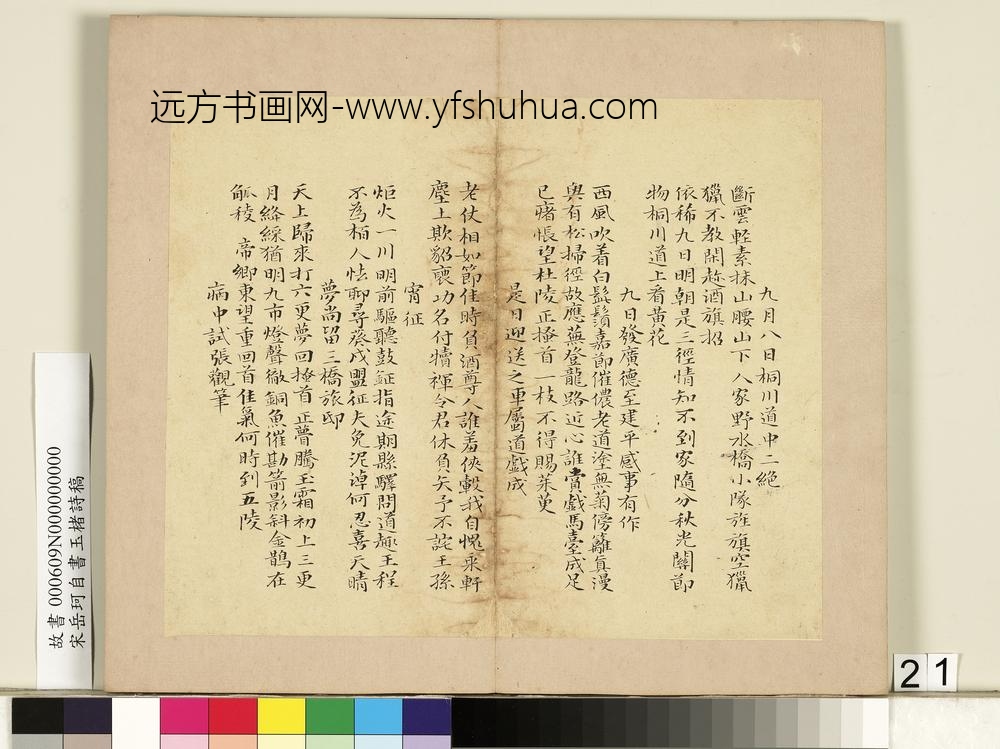 远方书画网-www.yfshuhua.com
九月八日桐川道中二絶
斷雲輕素抹山腰山下人家野水橋小隊旌旗空獵
獵不教閑趂酒旗招
依稀九日明朝是三徑情知不到家隨分秋光關節
物桐川道上看黃花
九日發廣德至建平感事有作
西風吹着白髭鬚嘉節催儂老道塗無菊傍籬真漫
與有松掃徑故應蕪登龍路近心誰賞戲馬臺成足
已瘏悵望杜陵正搔首一枝不得賜茱萸
是日迎送之車屬道戲成
老仗相如節佳時負酒尊人誰羞俠轂我自愧乘軒
塵土欺貂裘功名付犢褌令君休負矢予不詫王孫
宵征
炬火一川明前驅聽鼓鉦指途期縣驛問道趣王程
不為栢人怯聊尋葵戍盟征夫免泥淖何忍喜天晴
夢尚留三橋旅邸
天上歸來打六更夢回搔首正瞢騰玉霜初上三更
月絳綵猶明九市燈聲徹銅魚催勘箭影斜金鵲在
觚稜 帝鄉東望重回首佳氣何時到五陵
病中試張觀筆
故書000609N000000000
宋岳珂自書玉楮詩稿
21